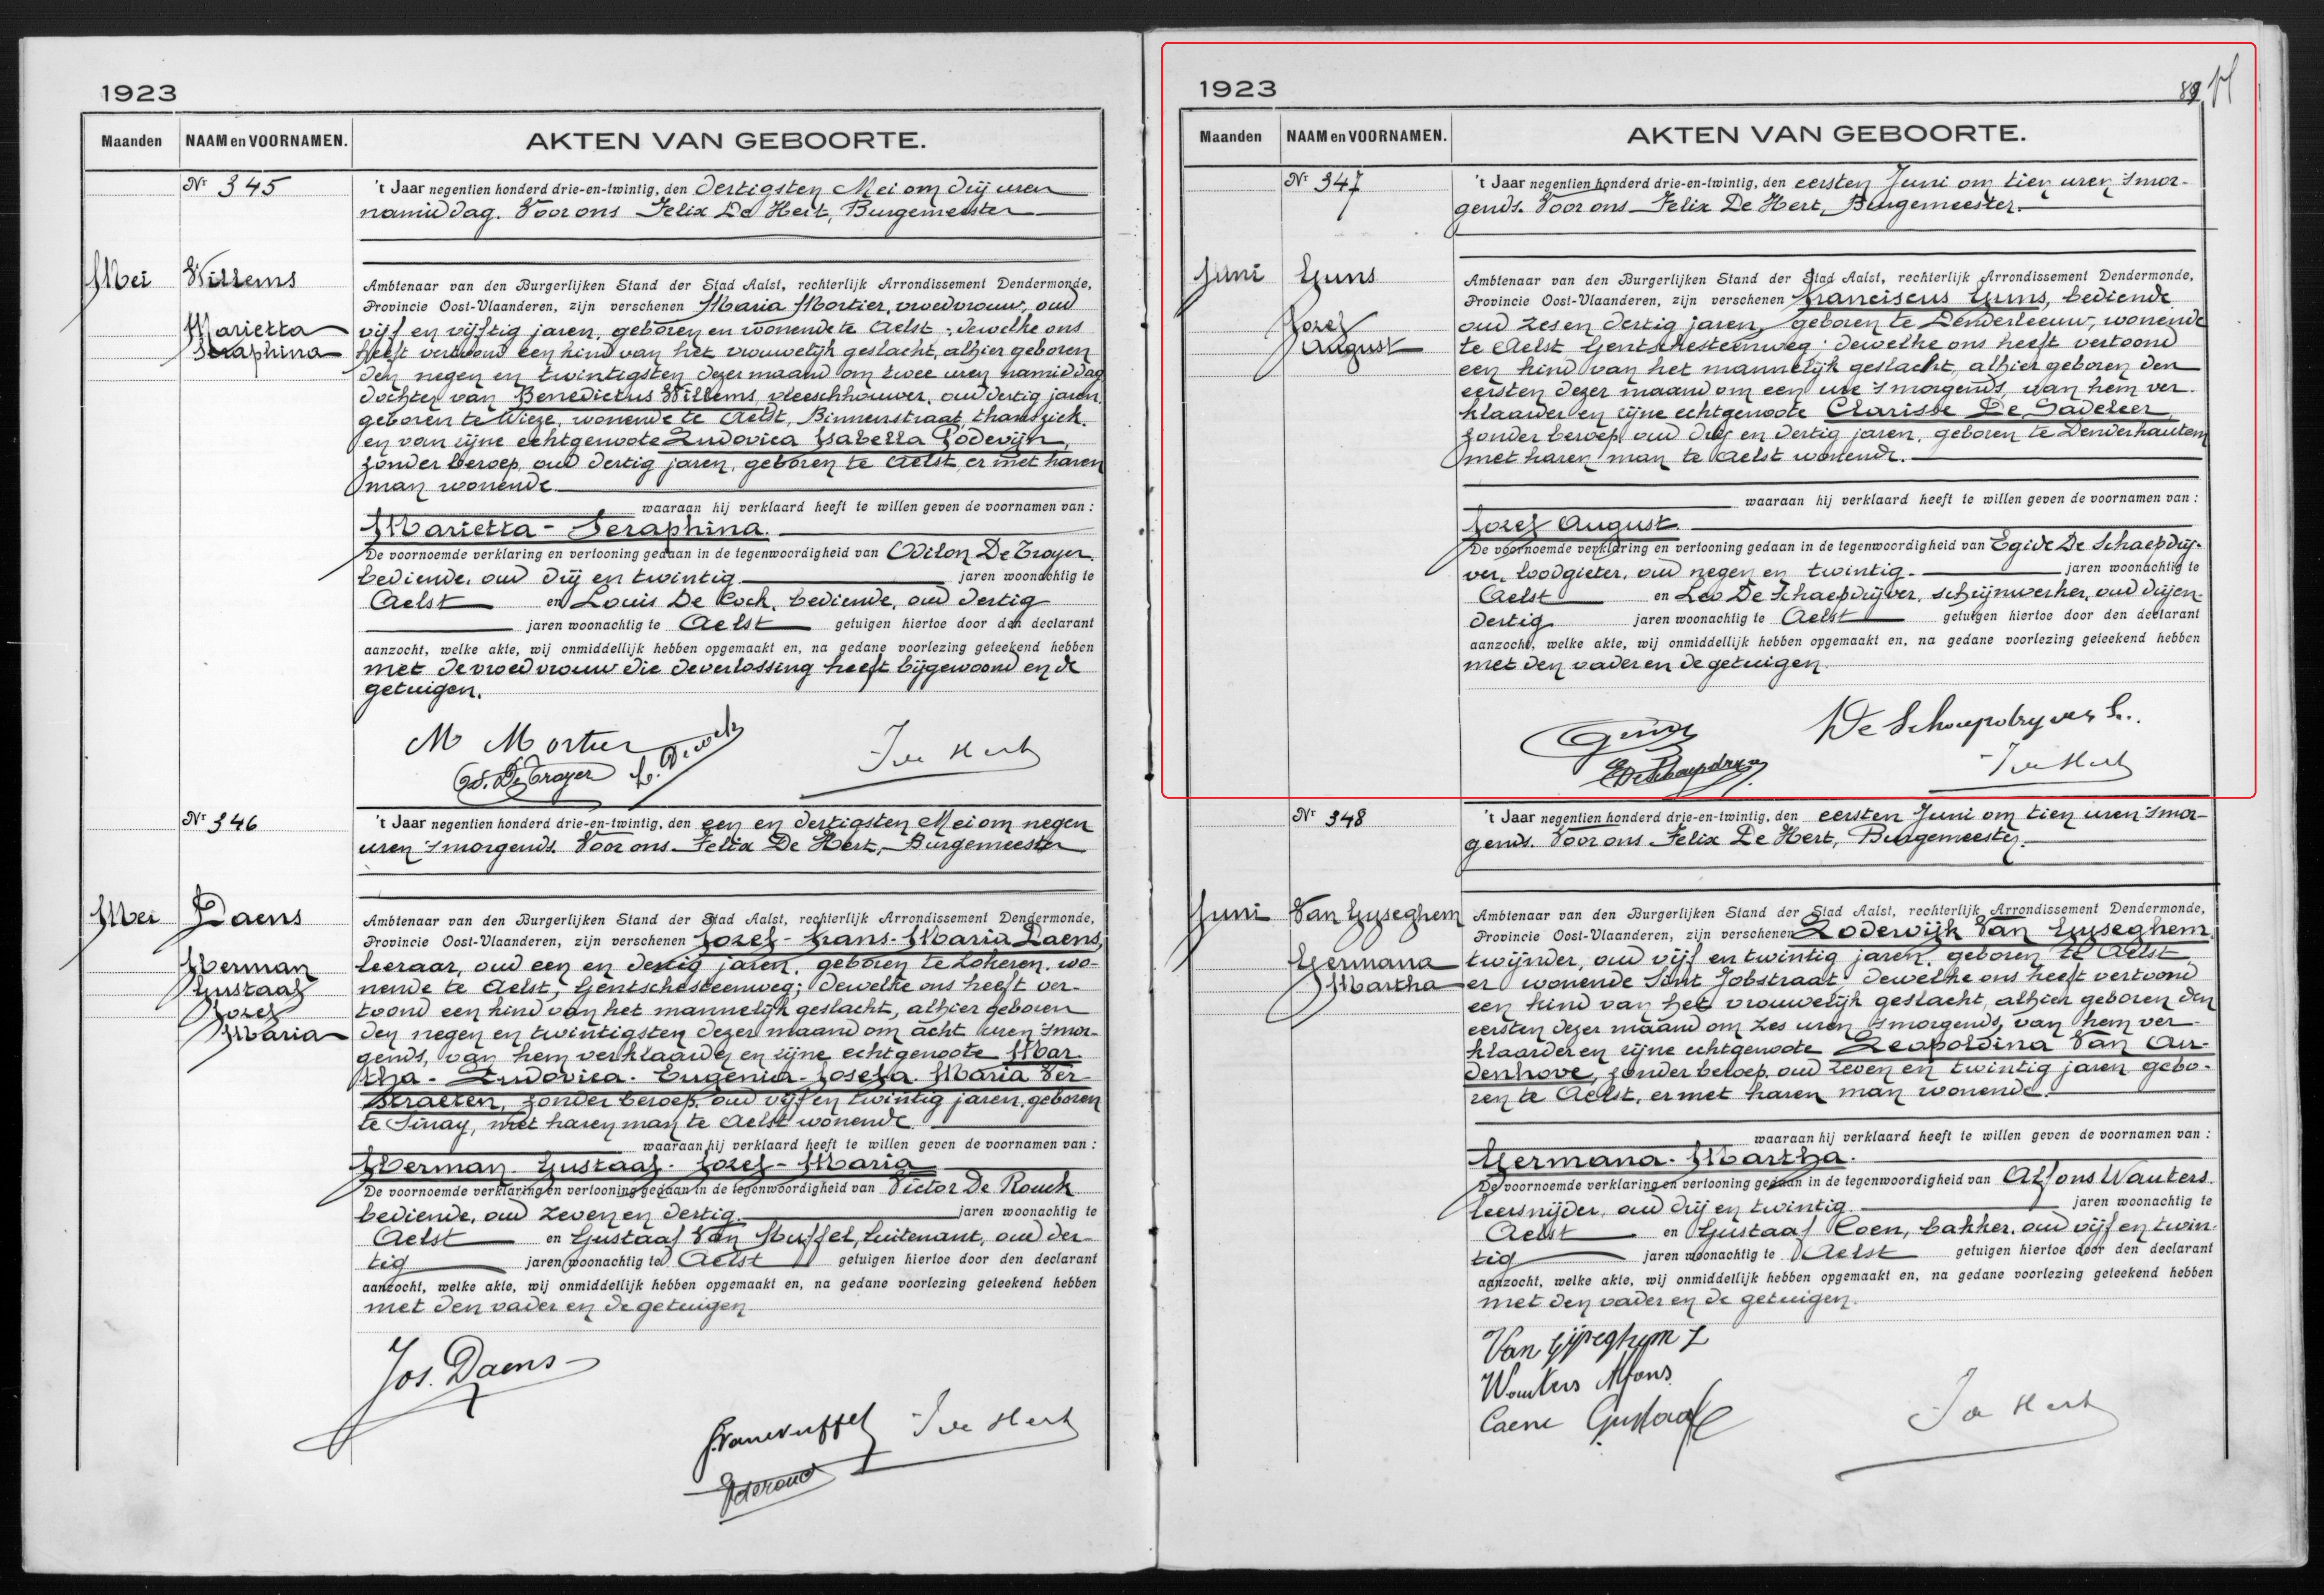 1923
Maanden NAAM en VOORNAMEN. AKTEN VAN GEBOORTE.
Nr 345
't Jaar negentien honderd drie-en-twintig, den dertigsten Mei om drij uren
namiddag. Voor ons Felix De Hert, Burgemeester
Mei Willems
Marietta
Seraphina
Ambtenaar van den Burgerlijken Stand der Stad Aalst, rechterlijk Arrondissement Dendermonde,
Provincie Oost-Vlaanderen, zijn verschenen Maria Mortier, vroedvrouw, oud
vijf en vijftig jaren, geboren en wonende te Aelst; dewelke ons
heeft vertoond een kind van het vrouwelijk geslacht, alhier geboren
den negen en twintigsten dezer maand om twee uren namiddag
dochter van Benedictus Willems, vleeschhouwer, oud dertig jaren,
geboren te Wieze, wonende te Aelst, Binnenstraat, thans ziek.
en van zijne echtgenoote Ludovica Isabella Podevijn,
zonder beroep, oud dertig jaren, geboren te Aelst, er met haren
man wonende
waaraan hij verklaard heeft te willen geven de voornamen van:
Marietta - Seraphina.
De voornoemde verklaring en vertooning gedaan in de tegenwoordigheid van Odilon De Troyer.
bediende, oud drij en twintig jaren woonachtig te
Aelst en Louis De Cock, bediende, oud dertig
jaren woonachtig te Aelst getuigen hiertoe door den declarant
aanzocht, welke akte, wij onmiddellijk hebben opgemaakt en, na gedane voorlezing geteekend hebben
met de vroedvrouw die de verlossing heeft bijgewoond en de
getuigen.
M Mortier
Od. De Troyer
F De Hert
Nr 346
't Jaar negentien honderd drie-en-twintig, den een en dertigsten Mei om negen
uren 's morgends. Voor ons Felix De Hert, Burgemeester
Mei Daens
Herman
Gustaaf
Jozef
Maria
Ambtenaar van den Burgerlijken Stand der Stad Aalst, rechterlijk Arrondissement Dendermonde,
Provincie Oost-Vlaanderen, zijn verschenen Jozef - Frans - Maria Daens,
leeraar, oud een en dertig jaren, geboren te Lokeren, wo-
nende te Aelst, Gentschesteenweg; dewelke ons heeft ver-
toond een kind van het mannelijk geslacht, alhier geboren
den negen en twintigsten dezer maand om acht uren 's mor-
gends, van hem verklaarder en zijne echtgenoote Mar-
tha - Ludovica - Eugenia - Josefa - Maria Ver-
straeten, zonder beroep, oud vijf en twintig jaren, geboren
te Sinay, met haren man te Aelst wonende.
waaraan hij verklaard heeft te willen geven de voornamen van:
Herman - Gustaaf - Jozef - Maria
De voornoemde verklaring en vertooning gedaan in de tegenwoordigheid van Victor De Rouck
bediende, oud zeven en dertig jaren woonachtig te
Aelst en Gustaaf Van Nuffel, luitenant, oud der-
tig jaren woonachtig te Aelst getuigen hiertoe door den declarant
aanzocht, welke akte, wij onmiddellijk hebben opgemaakt en, na gedane voorlezing geteekend hebben
met den vader en de getuigen
Jos. Daens
G. Vannuffel F De Hert
1923
89
Maanden NAAM en VOORNAMEN. AKTEN VAN GEBOORTE.
Nr 347
't Jaar negentien honderd drie-en-twintig, den eersten Juni om tien uren 's mor-
gends. Voor ons Felix De Hert, Burgemeester.
Juni Guns
Jozef
August
Ambtenaar van den Burgerlijken Stand der Stad Aalst, rechterlijk Arrondissement Dendermonde,
Provincie Oost-Vlaanderen, zijn verschenen Franciscus Guns, bediende
oud zes en dertig jaren, geboren te Denderleeuw, wonende
te Aelst Gentschesteenweg; dewelke ons heeft vertoond
een kind van het mannelijk geslacht, alhier geboren den
eersten dezer maand om een ure 's morgends, van hem ver-
klaarder en zijne echtgenoote Clarisse De Sadeleer,
zonder beroep, oud drij en dertig jaren, geboren te Denderhautem
met haren man te Aelst wonende.
waaraan hij verklaard heeft te willen geven de voornamen van:
Jozef August.
De voornoemde verklaring en vertooning gedaan in de tegenwoordigheid van Egide De Schaepdrij-
ver, loodgieter, oud negen en twintig. jaren woonachtig te
Aelst en Leo De Schaepdrijver, schrijnwerker, oud drijen-
dertig jaren woonachtig te Aelst getuigen hiertoe door den declarant
aanzocht, welke akte, wij onmiddellijk hebben opgemaakt en, na gedane voorlezing geteekend hebben
met den vader en de getuigen.
Guns De Schaepdryver L.
E De Schaepdryver F De Hert
Nr 348
't Jaar negentien honderd drie-en-twintig, den eersten Juni om tien uren 's mor-
gends. Voor ons Felix De Hert, Burgemeester.
Juni Van Gyseghem
Germana
Martha
Ambtenaar van den Burgerlijken Stand der Stad Aalst, rechterlijk Arrondissement Dendermonde,
Provincie Oost-Vlaanderen, zijn verschenen Lodewijk Van Gyseghem,
twijnder, oud vijf en twintig jaren, geboren te Aelst,
er wonende Sint Jobstraat; dewelke ons heeft vertoond
een kind van het vrouwelijk geslacht, alhier geboren den
eersten dezer maand om zes uren 's morgends, van hem ver-
klaarder en zijne echtgenoote Leopoldina Van Au-
denhove, zonder beroep, oud zeven en twintig jaren, gebo-
ren te Aelst, er met haren man wonende.
waaraan hij verklaard heeft te willen geven de voornamen van:
Germana - Martha.
De voornoemde verklaring en vertooning gedaan in de tegenwoordigheid van Alfons Wauters.
leersnijder, oud drij en twintig jaren woonachtig te
Aelst en Gustaaf Coen, bakker, oud vijf en twin-
tig jaren woonachtig te Aelst getuigen hiertoe door den declarant
aanzocht, welke akte, wij onmiddellijk hebben opgemaakt en, na gedane voorlezing geteekend hebben
met den vader en de getuigen.
Van Gijseghem L
Wauters Alfons.
Caene Gustaaf F De Hert